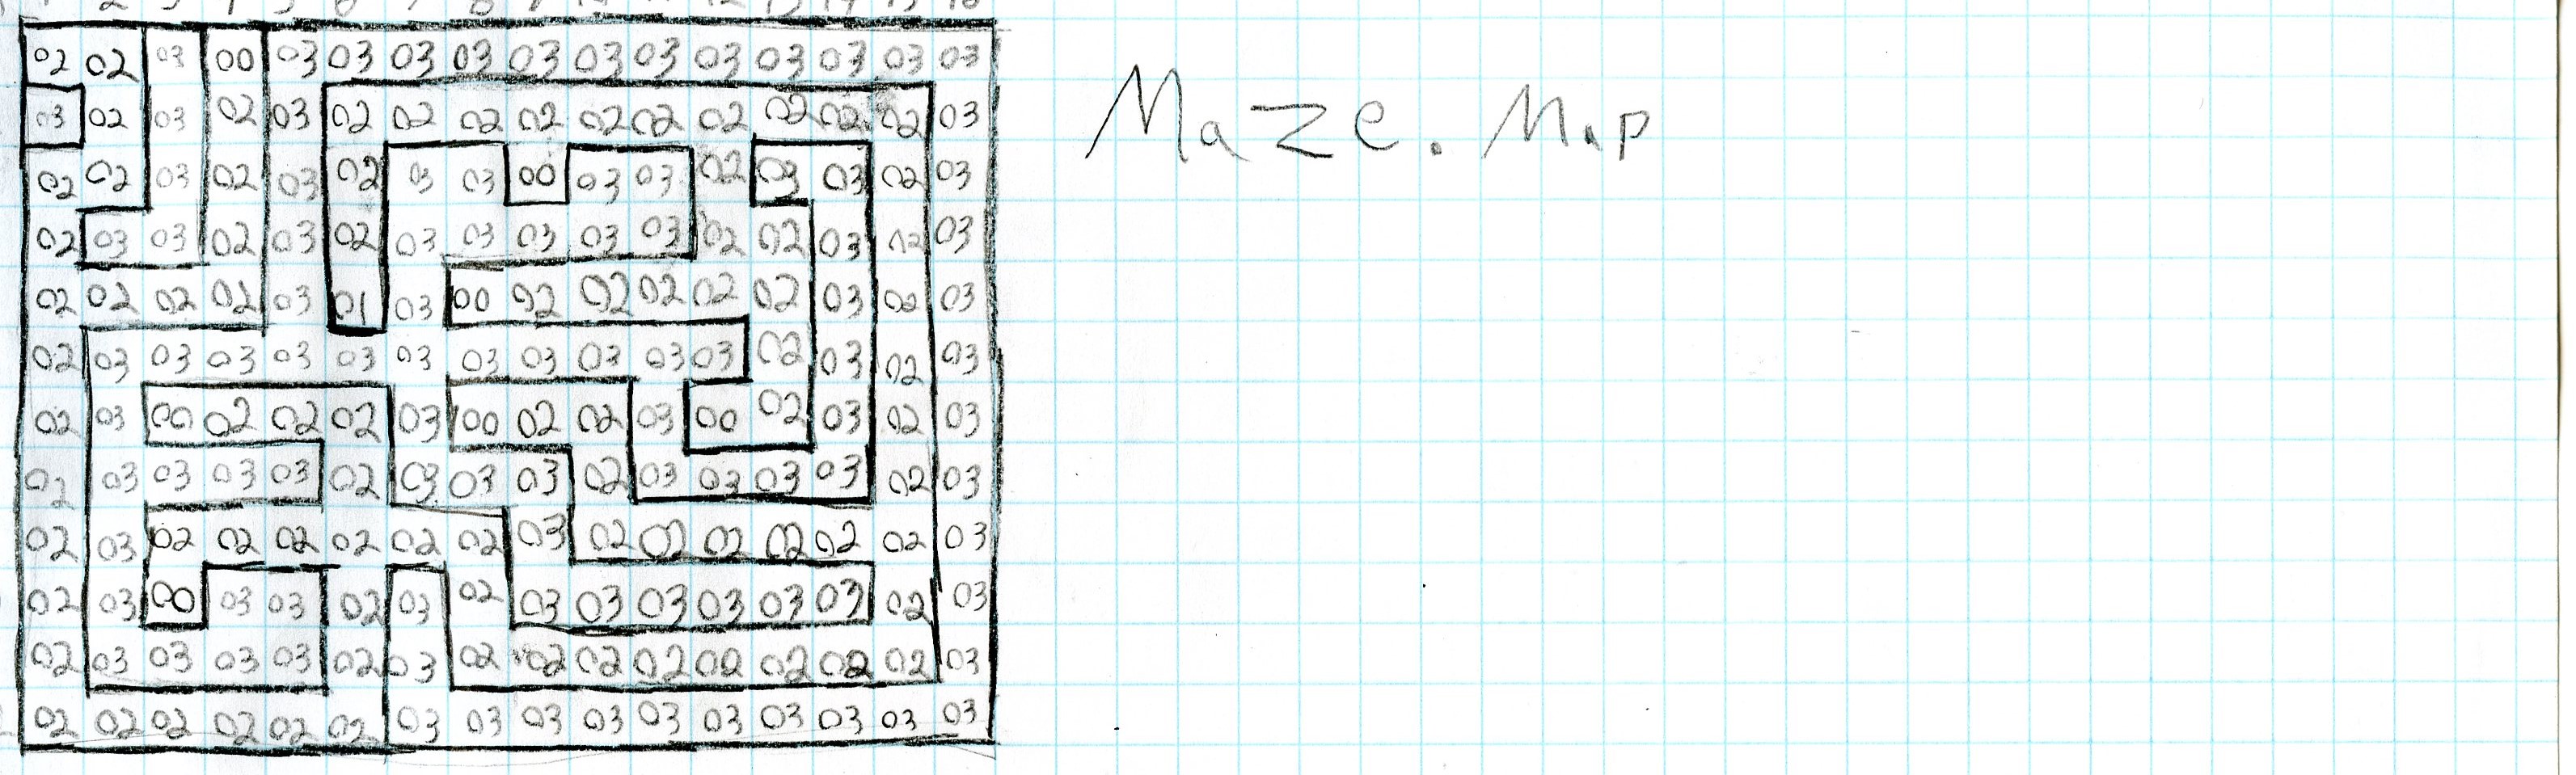 02 02 03 00 03 03 03 03 03 03 03 03 03 03 03 03
03 02 03 02 03 02 02 02 02 02 02 02 02 02 02 03
Maze.Map
02 02 03 02 03 02 03 03 00 03 03 02 03 03 02 03
02 03 03 02 03 02 03 03 03 03 03 02 02 03 02 03
02 02 02 02 03 01 03 00 02 02 02 02 02 03 02 03
02 03 03 03 03 03 03 03 03 03 03 03 02 03 02 03
02 03 00 02 02 02 03 00 02 02 03 00 02 03 02 03
02 03 03 03 03 02 03 03 03 02 03 03 03 03 02 03
02 03 02 02 02 02 02 02 03 02 02 02 02 02 02 03
02 03 00 03 03 02 03 02 03 03 03 03 03 03 02 03
02 03 03 03 03 02 03 02 02 02 02 02 02 02 02 03
02 02 02 02 02 02 03 03 03 03 03 03 03 03 03 03